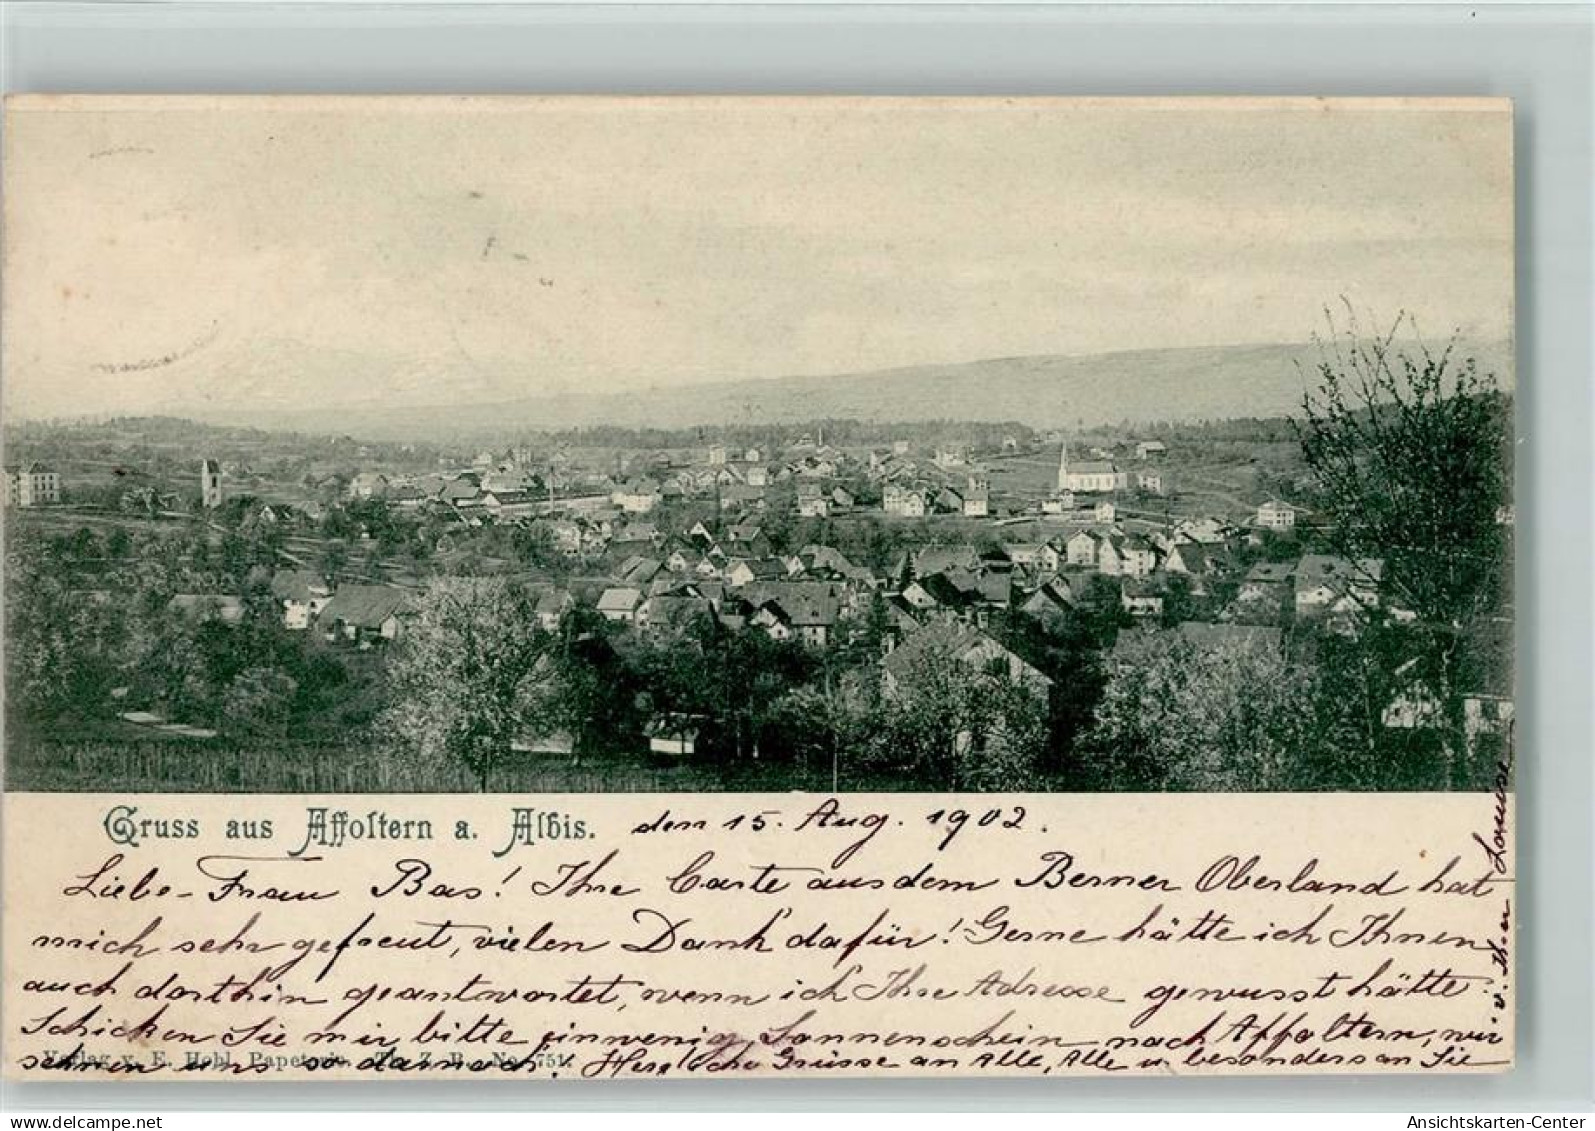 Gruss aus Affoltern a. Albis. den 15. Aug. 1902.
Liebe Frau Bas! Ihre Carte aus dem Berner Oberland hat
mich sehr gefreut, vielen Dank dafür! Gerne hätte ich Ihnen
auch dorthin geantwortet, wenn ich Ihre Adresse gewusst hätte.
Schicken Sie mir bitte ein wenig Sonnenschein nach Affoltern, wir
sehnen uns so darnach. Herzliche Grüsse an Alle, Alle u. besonders an Sie
v. Ihrer Louise
Verlag v. E. Hobl, Papeterie. Th. Z. B. No. 751.
delcampe.net
Ansichtskarten-Center